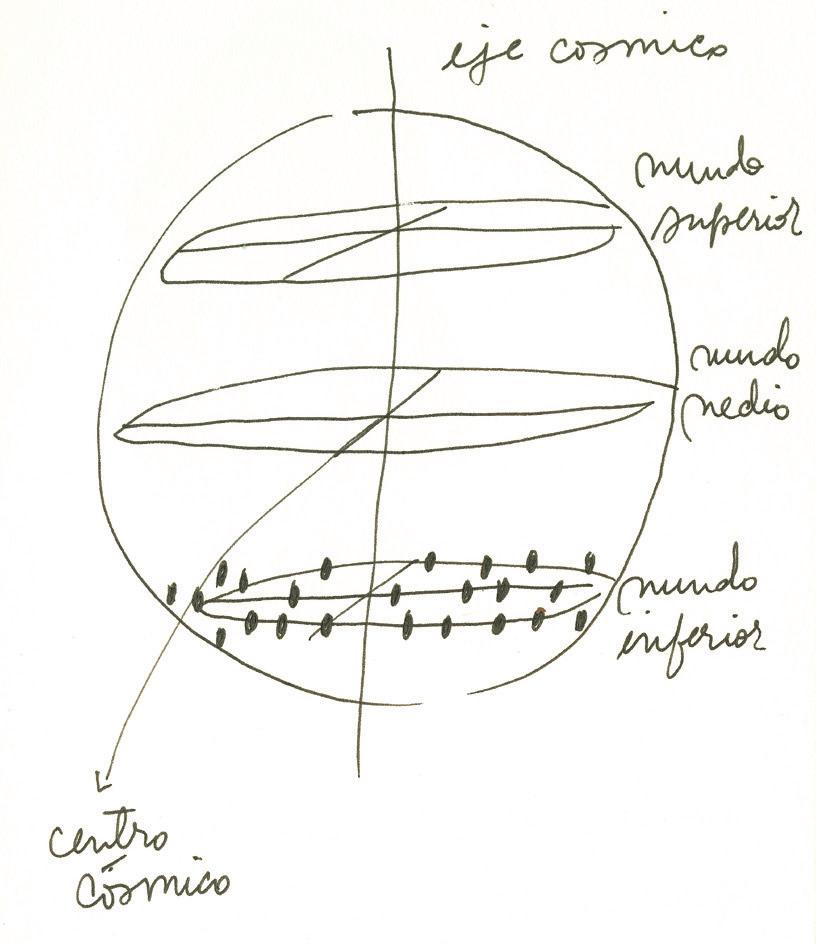 eje cosmico
mundo
superior
mundo
medio
mundo
inferior
centro
cósmico